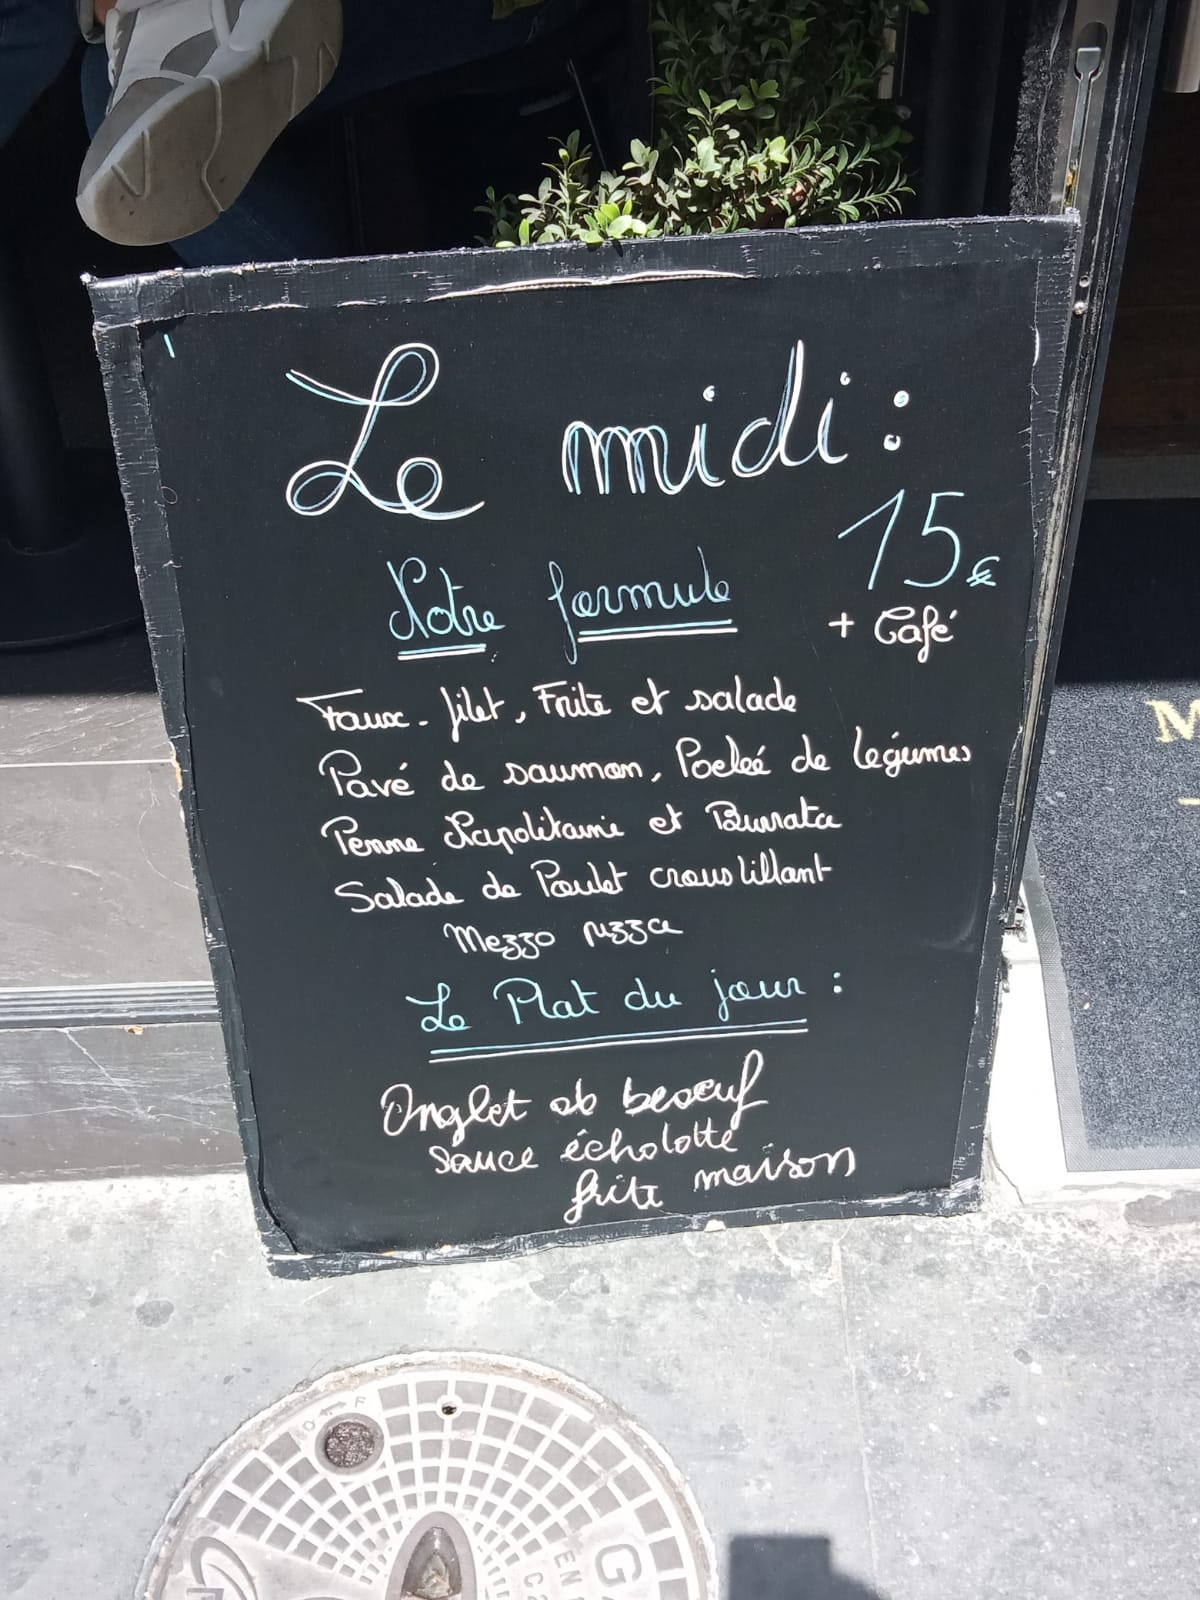 Le midi :
15€
Notre formule
+ Café
Faux-filet, Frite et salade
Pavé de saumon, Poeleé de legumes
Penne Napolitaine et Burrata
Salade de Poulet croustillant
Mezzo pizza
Le Plat du jour :
Onglet de beoeuf
sauce écholotte
frite maison
M
O F
G
EN
C2